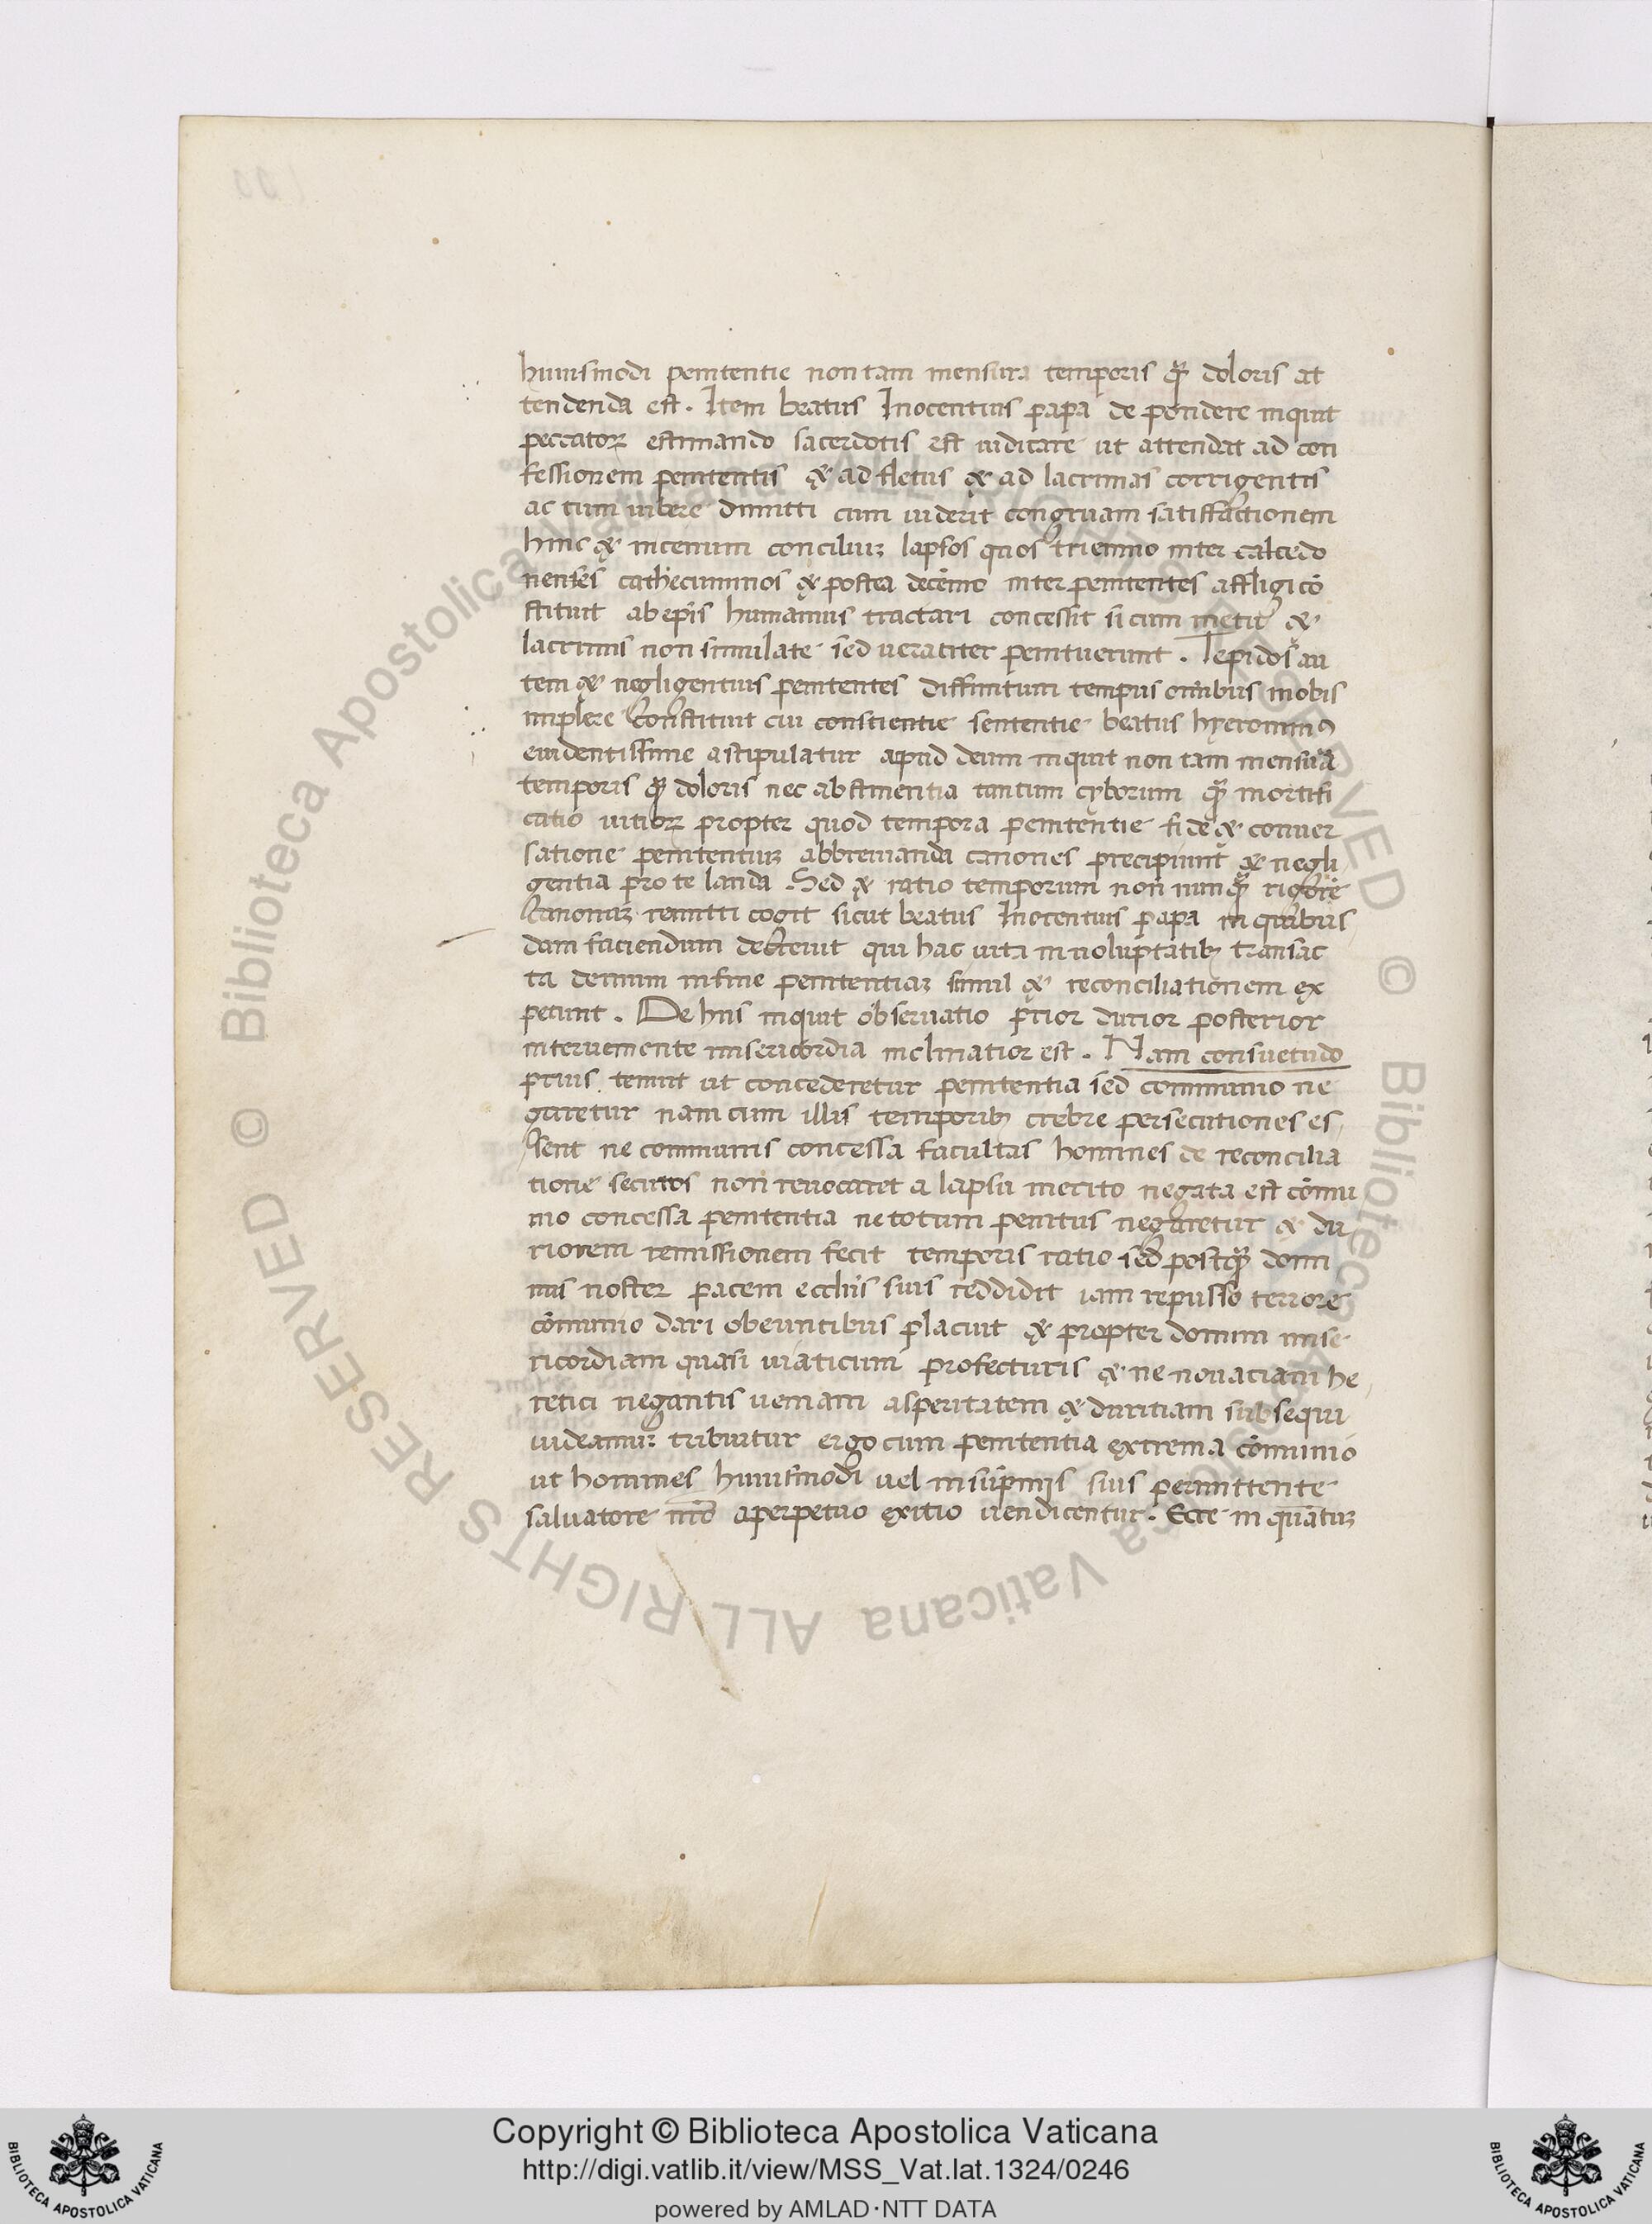 huiusmodi penitentie non tam mensura temporis qꝫ doloris at
tendenda est. Item beatus Inocentius papa de pondere inquit
peccatoꝝ estimando sacerdotis est iudicare ut attendat ad con
fessionem penitentis & ad fletus & ad lacrimas corrigentis
ac tum iubere dimitti cum uiderit congruam satisffactionem
hinc & nicenum conciliuꝫ lapsos quos triennio inter calcedo
nenses cathecuminos & postea decēnio inter penitentes affligi cō
stituit ab ep̄is humanius tractari concessit si cum metu &
lacrimis non simulate sed ueraciter penituerunt. Tepidos au
tem & negligentius penitentes diffinitum tempus omībus modis
implere constituit cui conscientie sententie beatus hyeronimꝯ
euidentissime astipulatur apud deum inquit non tam mensura
temporis qꝫ doloris nec abstinentia tantum cyborum qꝫ mortifi
catio uitioꝝ propter quod tempora penitentie fide & conuer
satione penitentiuꝫ abbreuianda canones precipiunt & negli
gentia protelanda. Sed & ratio temporum non nunqꝫ rigorē
canonuꝫ remitti cogit sicut beatus Inocentius papa in quibus
dam faciendum decreuit qui hac uita in uoluptatibꝫ transac
ta demum in fine penitentiaꝫ simul & reconciliationem ex
petunt. De hiis inquit obseruatio prior durior posterior
interueniente misericordia inclinatior est. Nam consuetudo
prius tenuit ut concederetur penitentia sed communio ne
garetur nam cum illis temporibꝫ crebre persecutiones es
sent ne communis concessa facultas homines de reconcilia
tione securos non reuocaret a lapsu merito negata est cōmu
nio concessa penitentia ne totum penitus negaretur & du
riorem remissionem fecit temporis ratio sed postqꝫ domi
nus noster pacem ecclīis suis reddidit iam repulso terrore
cōmunio dari obeuntibus placuit & propter domini mise
ricordiam quasi uiaticum profecturis & ne nouaciani he
retici negantis ueniam asperitatem & duritiam subsequi
uideamur tribuatur ergo cum penitentia extrema cōmunio
ut homines huiusmodi uel in supremis suis permittente
saluatore nr̄o a perpetuo exitio uendicentur. Ecce in quantuꝫ
Copyright © Biblioteca Apostolica Vaticana
http://digi.vatlib.it/view/MSS_Vat.lat.1324/0246
powered by AMLAD·NTT DATA